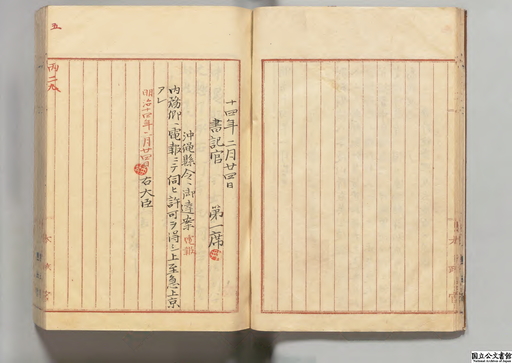 十四年二月廿四日
書記官 第一席
沖縄縣令ヘ御達案 電報
内務卿ヘ電報ニテ伺ヒ許可ヲ得シ上至急上京
アレ
明治十四年二月廿四日 右大臣
五
太政官
国立公文書館
National Archives of Japan